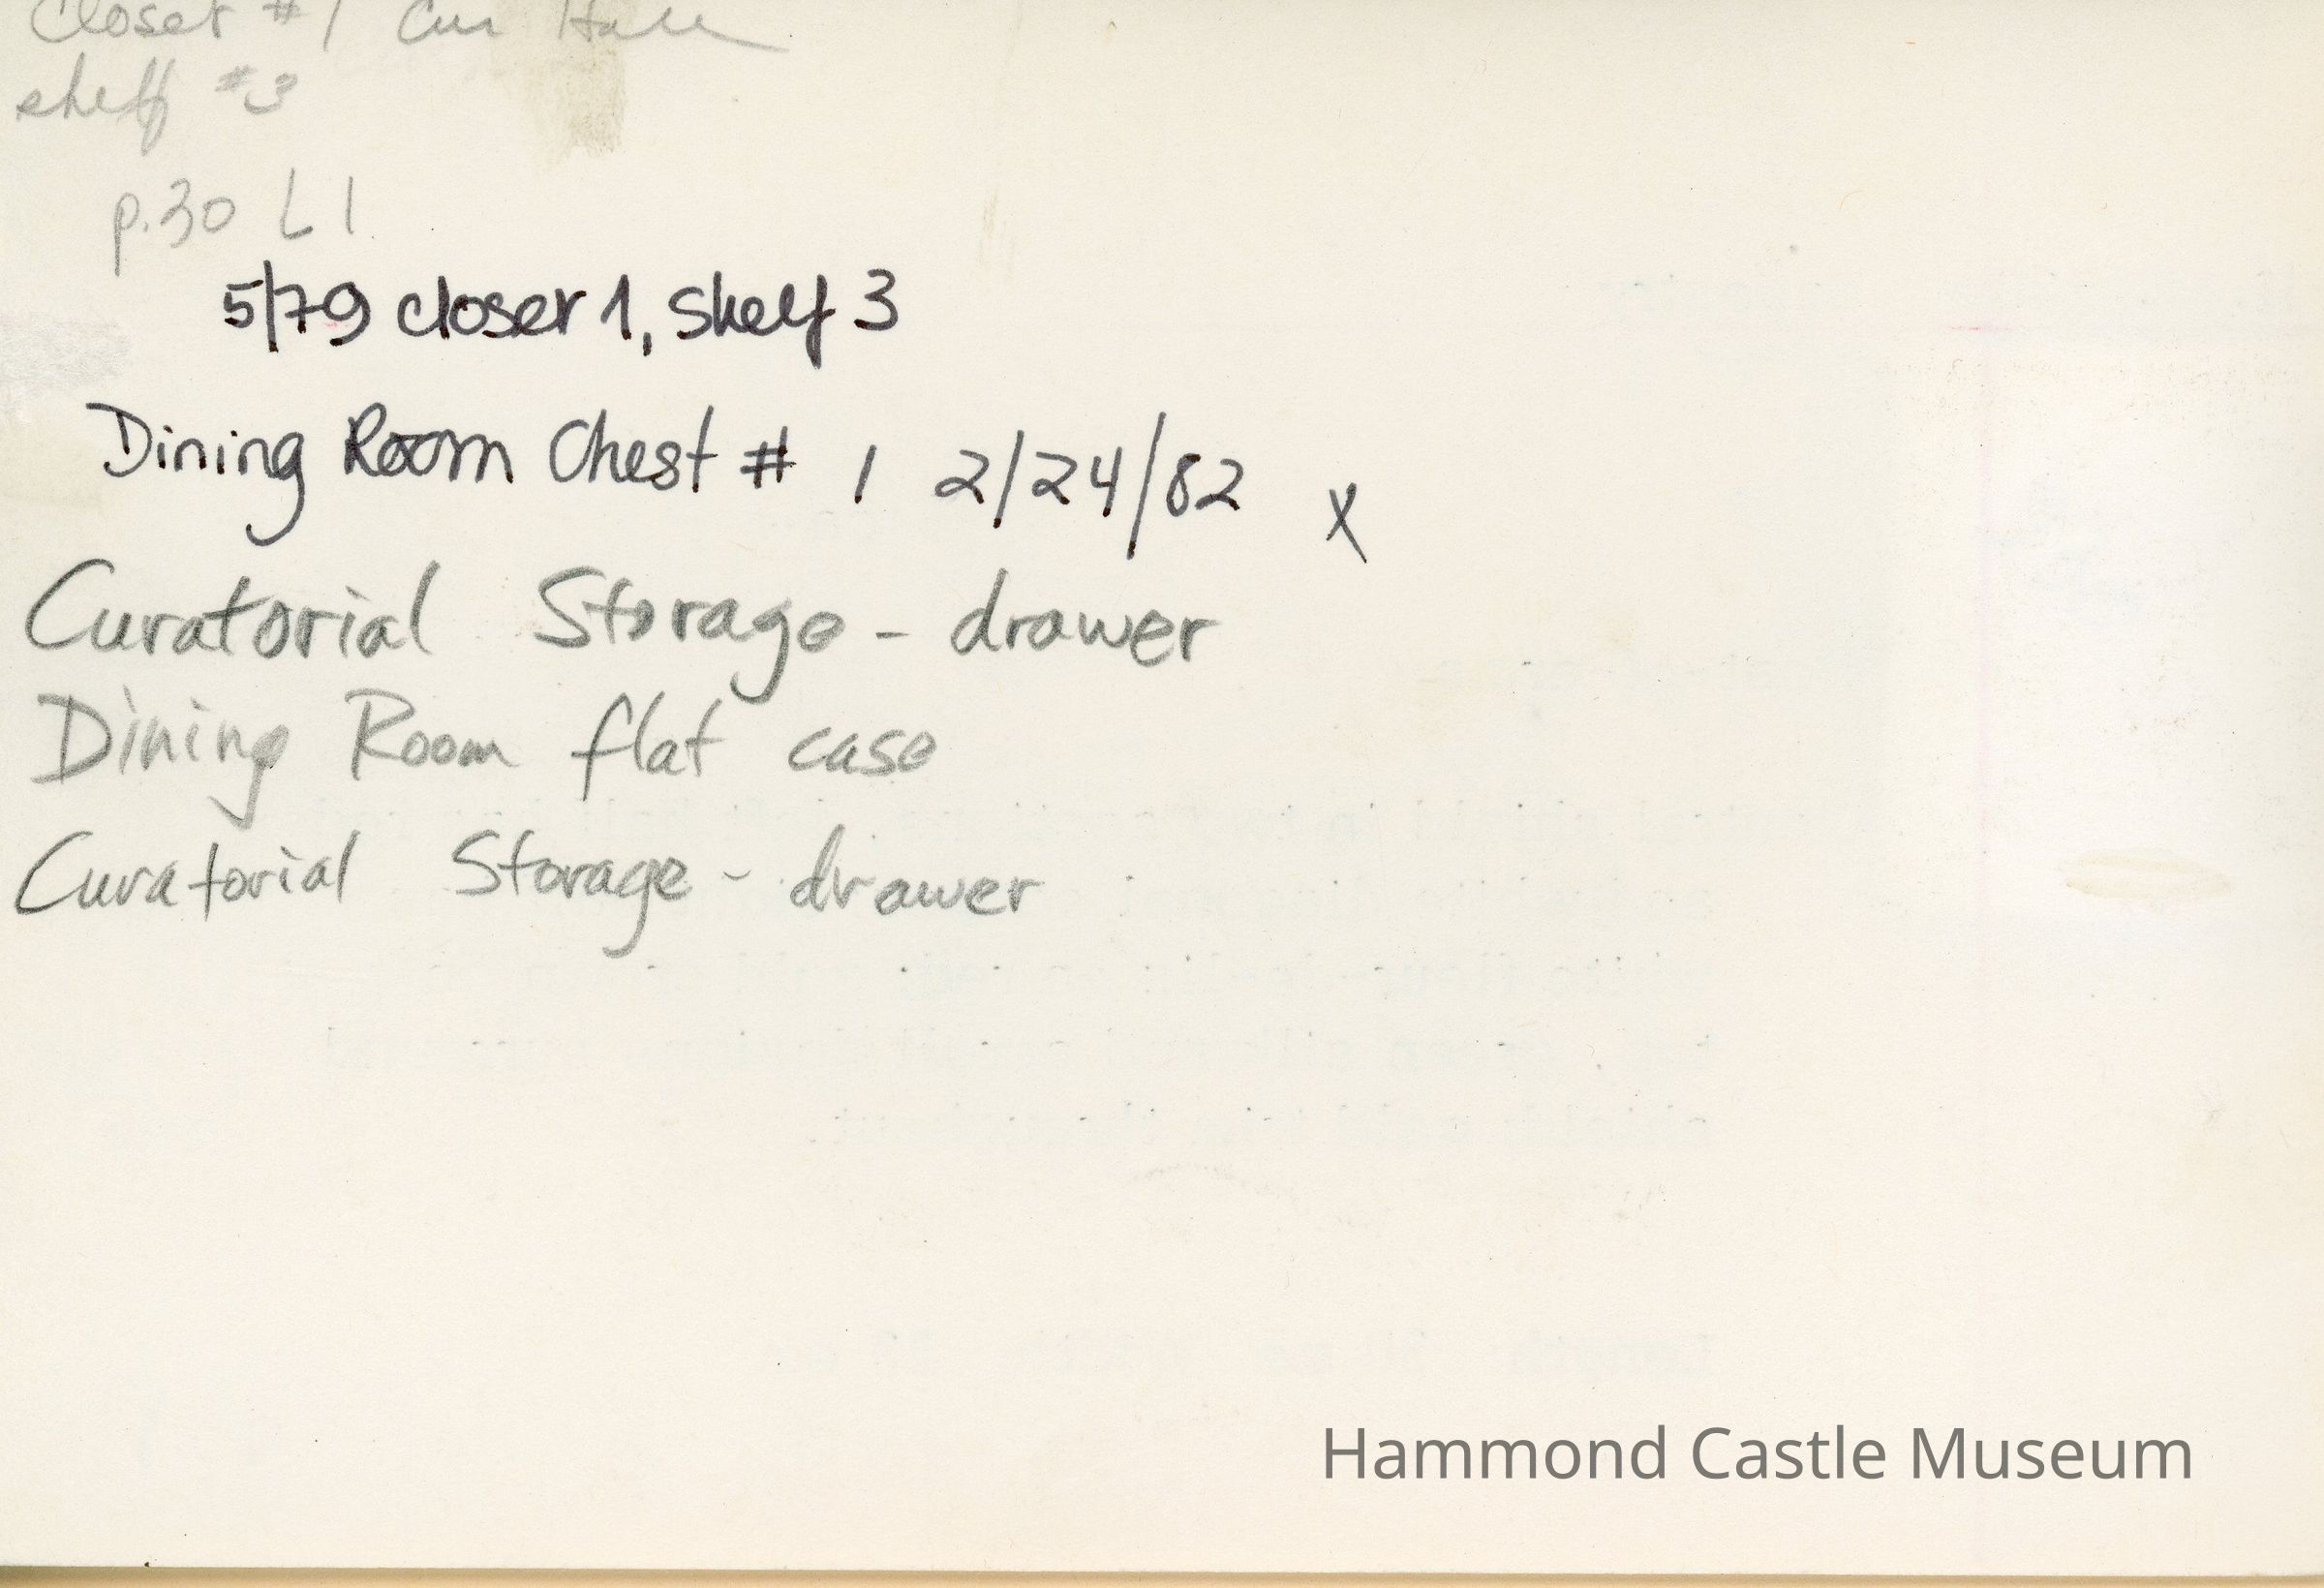 Closet #1 Cur Hall
shelf #3
p.30 L1
5/79 closet 1, shelf 3
Dining Room Chest # 1 2/24/82 x
Curatorial Storage - drawer
Dining Room flat case
Curatorial Storage - drawer
Hammond Castle Museum